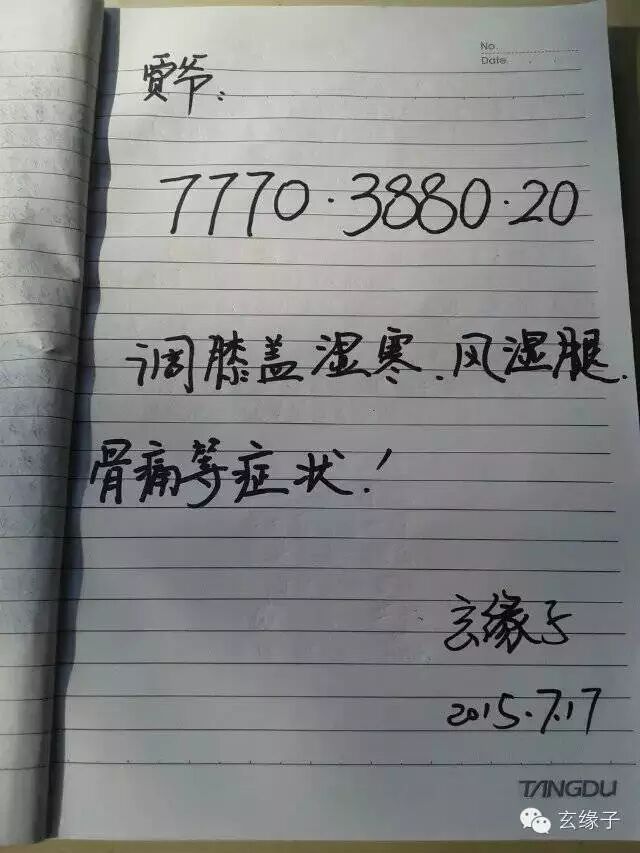 No.
Date.
贾爷:
7770·3880·20
调膝盖湿寒、风湿腿、
骨痛等症状!
玄缘子
2015.7.17
TANGDU
玄缘子